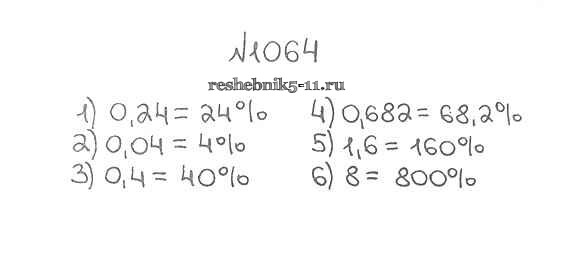 №1064
reshebnik5-11.ru
1) 0,24 = 24%
2) 0,04 = 4%
3) 0,4 = 40%
4) 0,682 = 68,2%
5) 1,6 = 160%
6) 8 = 800%